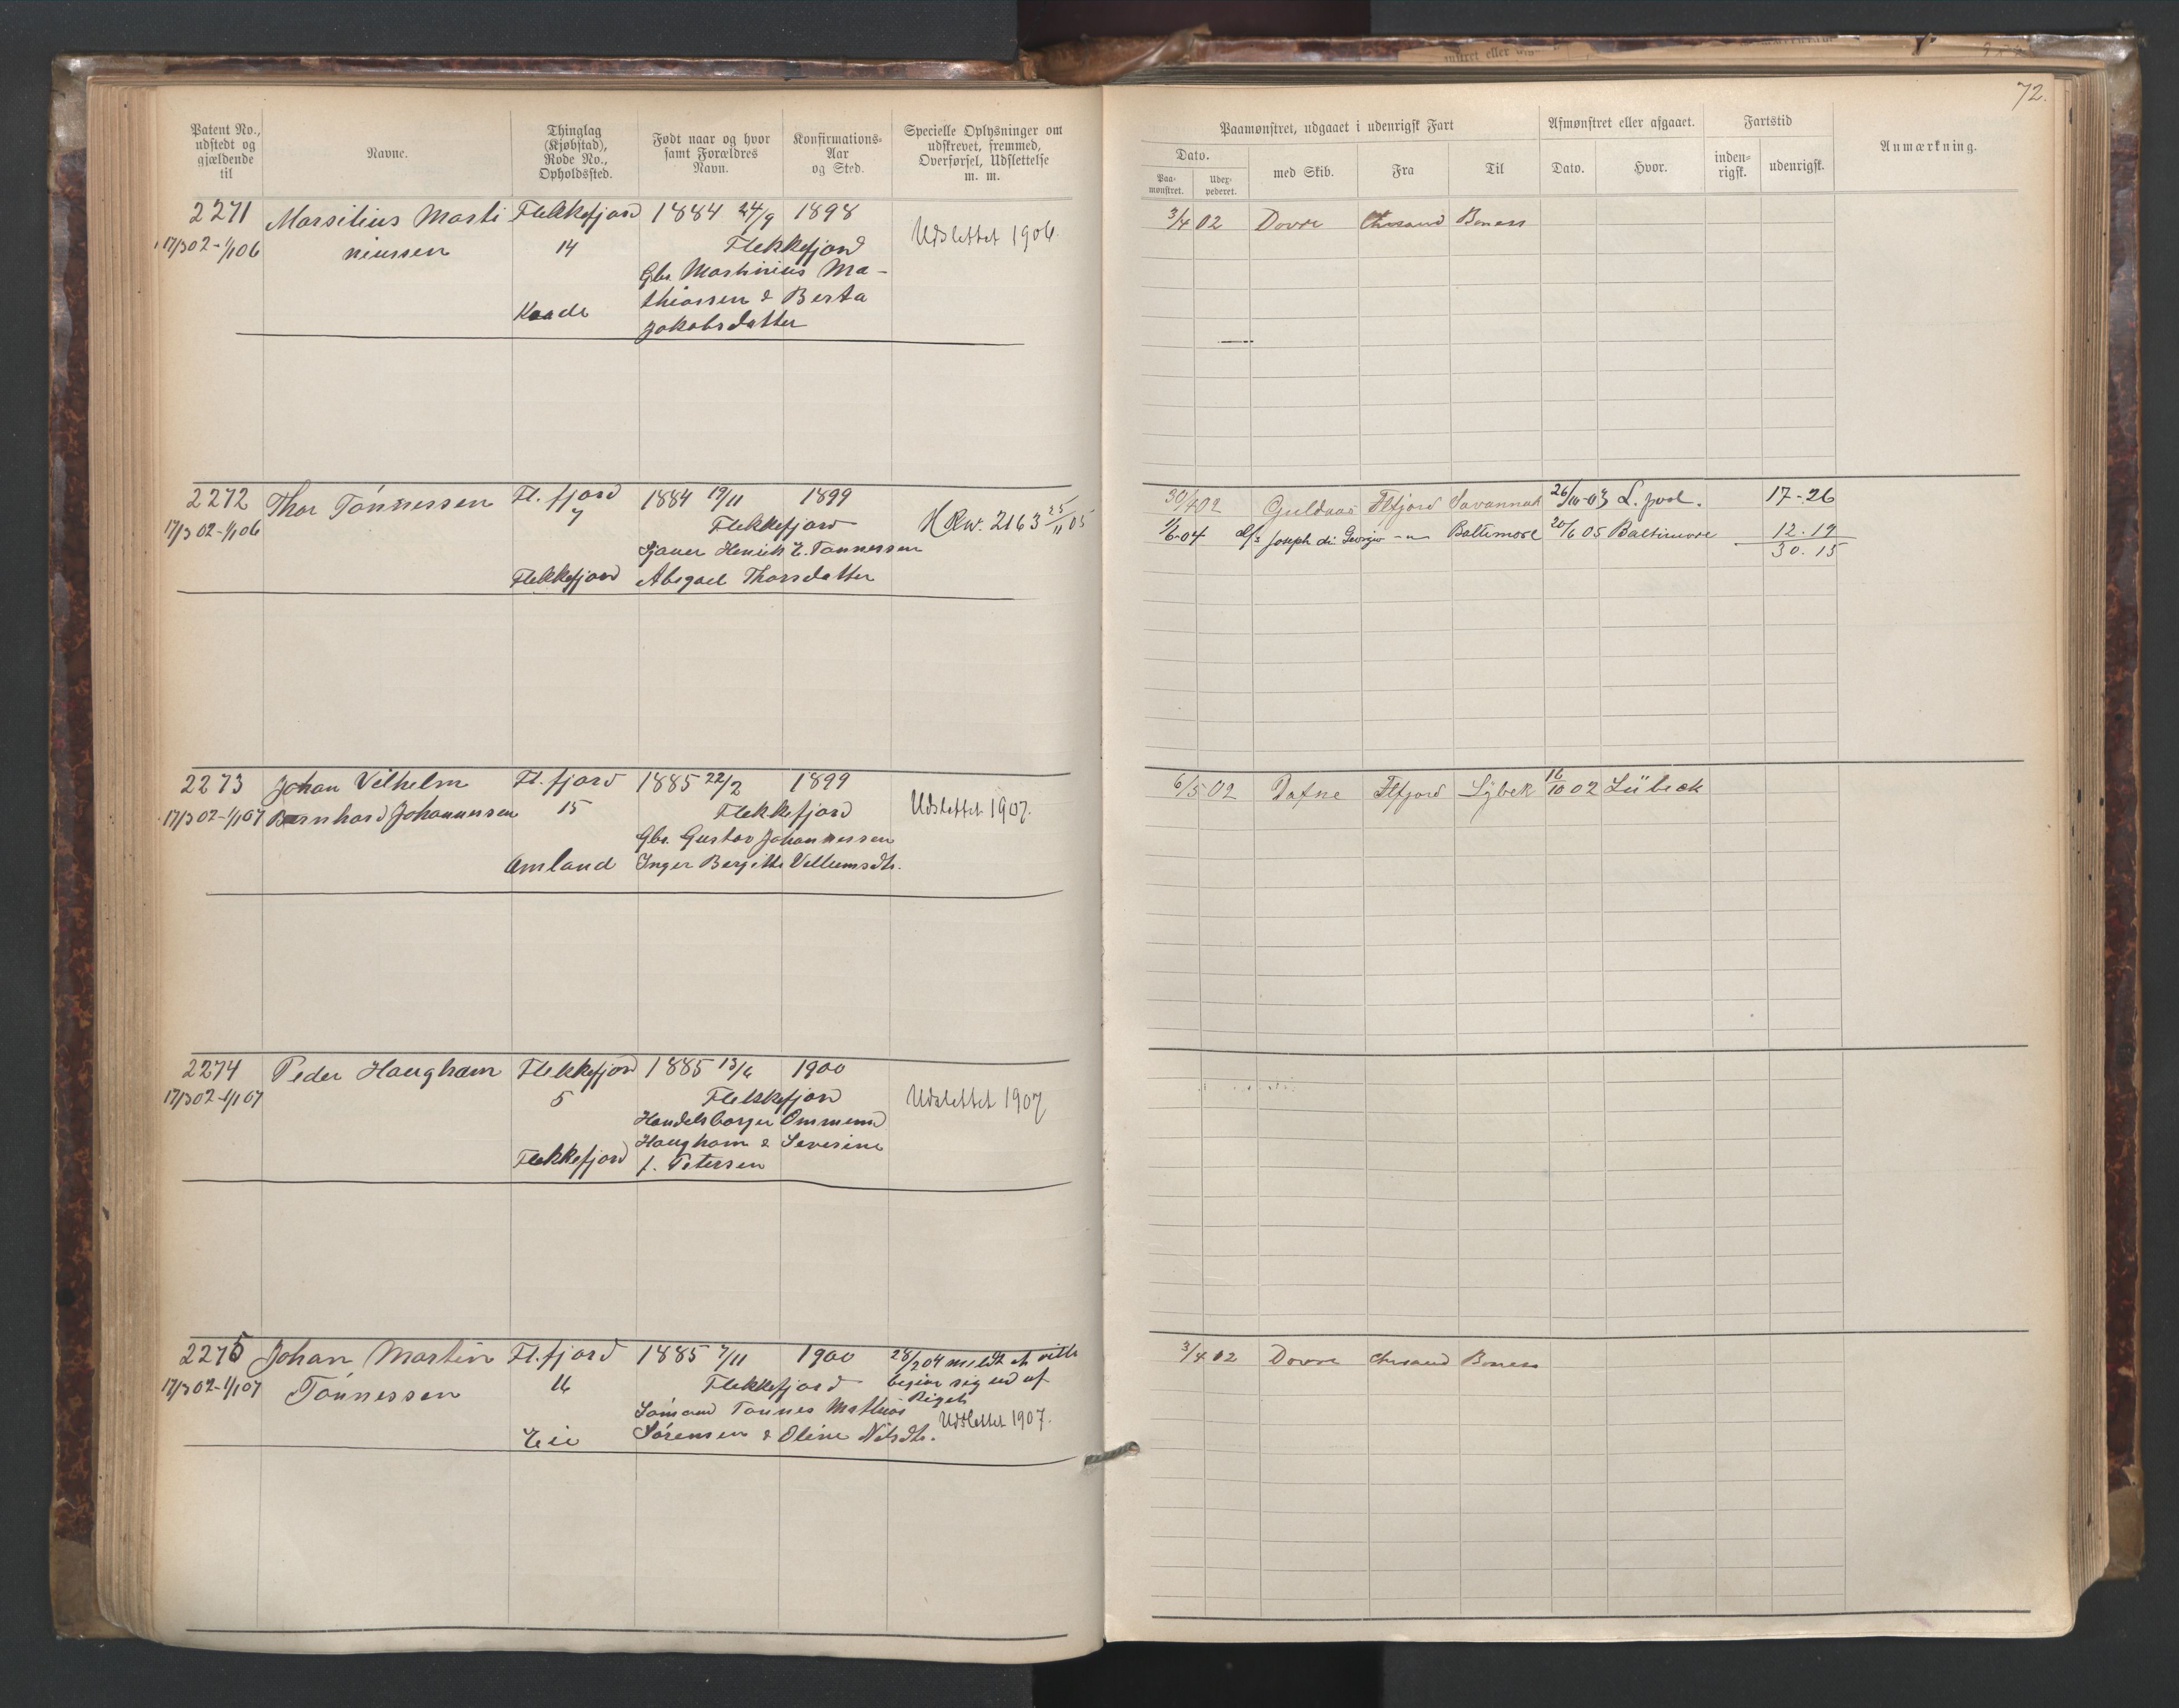 72.
Patent No., udstedt og gjældende til
Navne.
Thinglag (Kjøbstad), Rode No., Opholdssted.
Født naar og hvor samt Forældres Navn.
Konfirmations-Aar og Sted.
Specielle Oplysninger om udskrevet, fremmed, Overførsel, Udslettelse m. m.
Paamønstret, udgaaet i udenrigsk Fart
Dato.
Paa-mønstret.
Udex-pederet.
med Skib.
Fra
Til
Afmønstret eller afgaaet.
Dato.
Hvor.
Fartstid
inden-rigsk.
udenrigsk.
Anmærkning.
2271 Marsilius Marti Flekkefjord 1884 24/9 1898
17/3 02-1/1 06 niussen 14 Flekkefjord Udslettet 1906.
Gbr. Martinius Ma-
thiassen & Berta
Kaade
Jakobsdatter
3/4 02 Dovre Chrsand Boness
2272 Thor Tónnessen Fl. fjord 1884 19/11 1899
17/3 02-1/1 06 7 Flekkefjord H Rw. 2163 25/11 05
Sjauer Henrik E. Tonnessen
Flekkefjord Abigael Thorsdatter
30/4 02 Guldaas Flfjord Savannah 26/10-03 L. pool. 17-26
1/6-04 D/s Joseph di Georgio -"- Baltimore 20/6 05 Baltimore 12.19
30.15
2273 Johan Vilhelm Fl. fjord 1885 22/2 1899
17/3 02-1/1 07 Bernhard Johannessen 15 Flekkefjord Udslettet 1907.
Gbr. Gustav Johannessen
Omland Inger Bergitte Vellumsdtr.
6/5 02 Dafne Flfjord Lybek 16/10 02 Lübeck
2274 Peder Haugham Flekkefjord 1885 13/6 1900
17/3 02-1/1 07 5 Flekkefjord Udslettet 1907
Handelsborger Ommund
Haugham & Severine
Flekkefjord f. Petersen
2275 Johan Martin Fl. fjord 1885 7/11 1900 28/2 04 meldt at ville
17/3 02-1/1 07 Tónnessen 16 Flekkefjord begive sig ud af
Sómand Tonnes Mathias Riget
Eie Sórensen & Oline Nilsdtr. Udslettet 1907.
3/4 02 Dovre Chrsand Boness